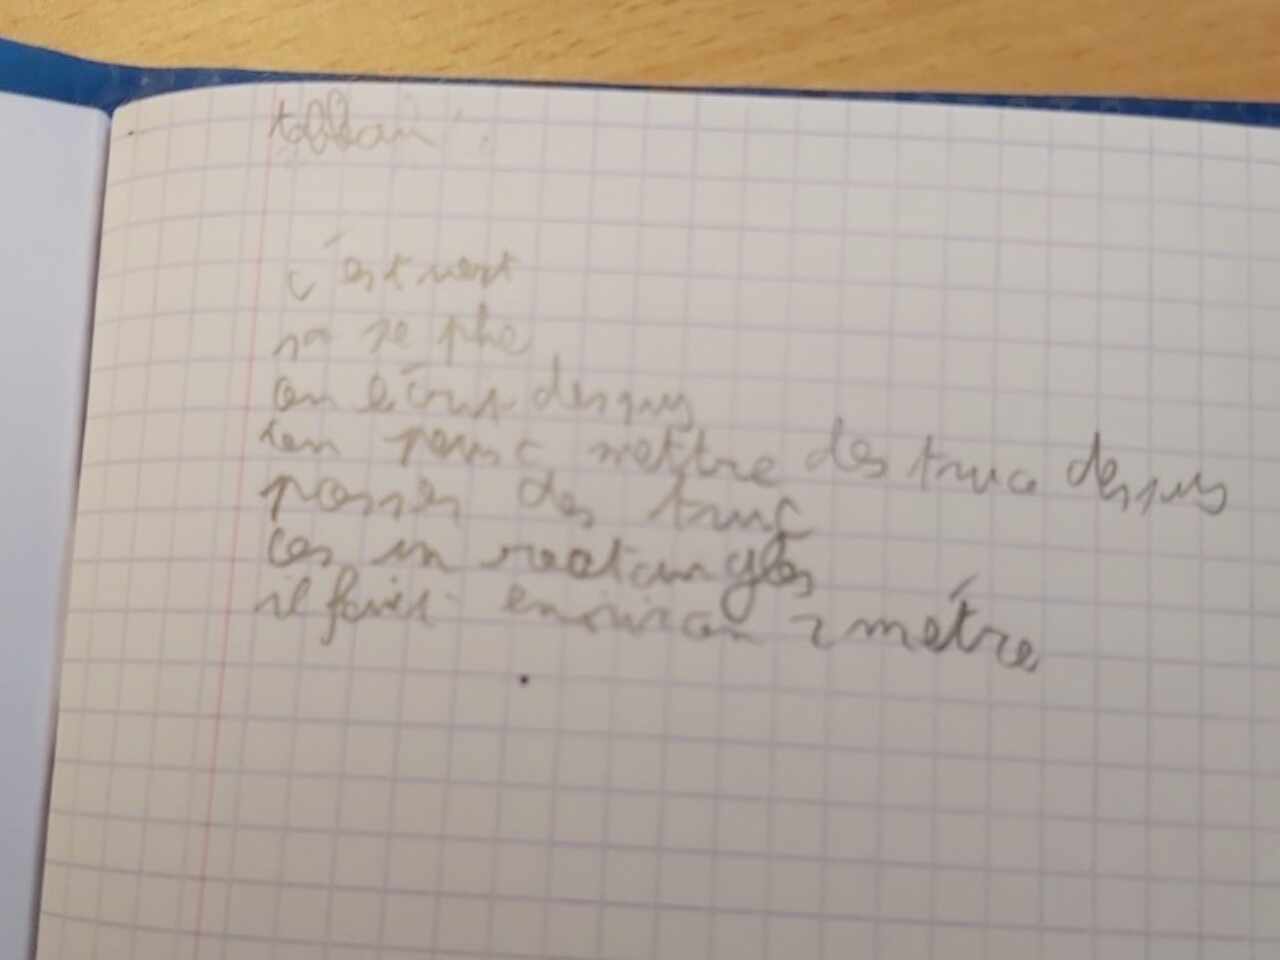 tableau :
c'est vert
sa se plie
on écrit desus
on peus mettre des truc despus
posser des truc
ces un rectangles
il fait environ 2 métre